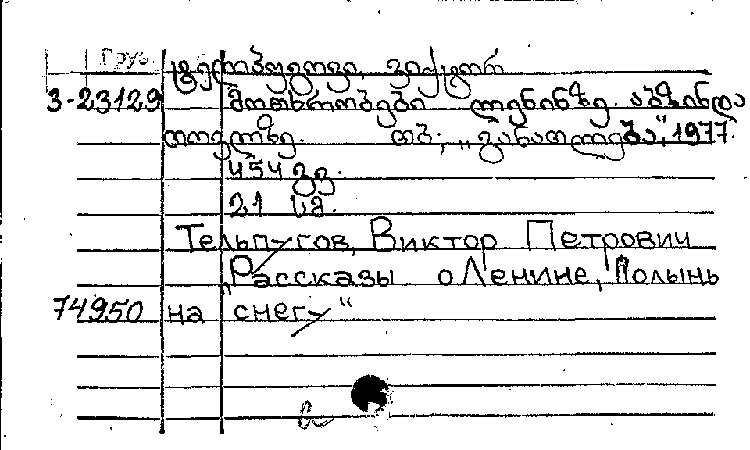 Груз.
ტელპუგოვი, ვიქტორ
3-23129 მოთხრობები ლენინზე. აბზინდა
თოვლზე. თბ., „განათლება“, 1977.
454 გვ.
21 სმ.
Тельпугов, Виктор Петрович
„Рассказы о Ленине, Полынь
74950 на снегу“